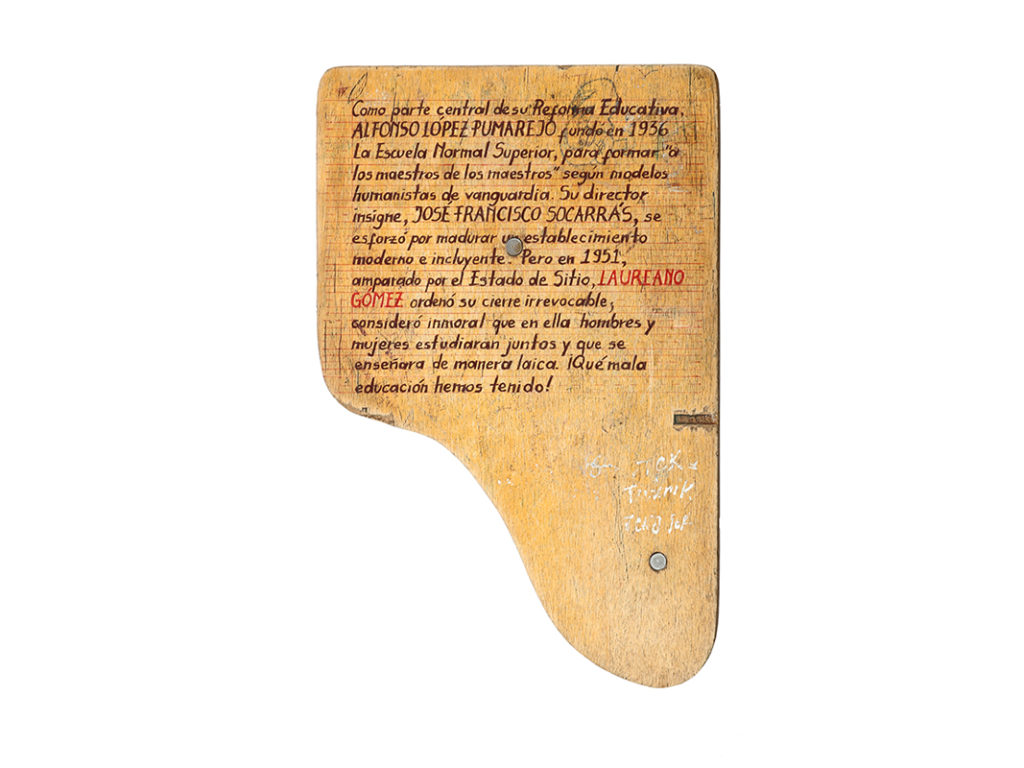 Como parte central de su Reforma Educativa,
ALFONSO LÓPEZ PUMAREJO fundó en 1936
La Escuela Normal Superior, para formar "a
los maestros de los maestros" según modelos
humanistas de vanguardia. Su director
insigne, JOSÉ FRANCISCO SOCARRÁS, se
esforzó por madurar un establecimiento
moderno e incluyente. Pero en 1951,
amparado por el Estado de Sitio, LAUREANO
GÓMEZ ordenó su cierre irrevocable;
consideró inmoral que en ella hombres y
mujeres estudiaran juntos y que se
enseñara de manera laica. ¡Qué mala
educación hemos tenido!